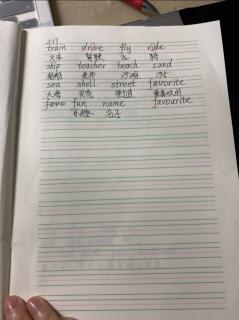 2.17
train drive fly ride
火车 驾驶 飞 骑
ship teacher beach sand
船 老师 沙滩 沙子
sea shell street favorite
大海 贝壳 街道 最喜欢的
favo fun name favourite
乐趣 名字